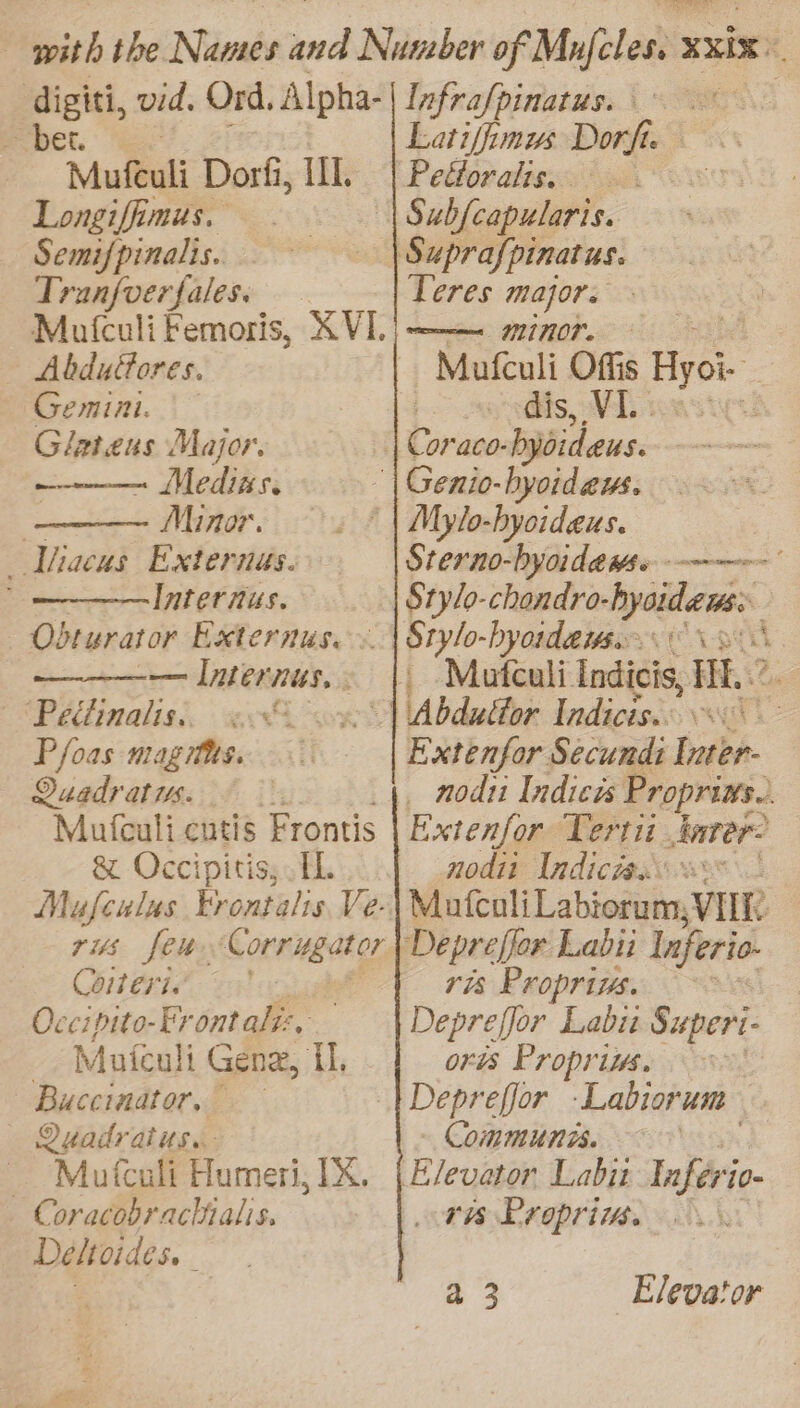 with the Names and Number of Muſcles. xxix
digiti, vid. Ord. Alpha-
bet.
Muſculi Dorſi, III.
Longiſſimus.
Semiſpinalis.
Tranſverſales.
Muſculi Femoris, XVI.
Abductores.
Gemini.
Glutæus Major.
——— Medius.
——— Minor.
Iliacus Externus.
——— Internus.
Obturator Externus.
——— Internus.
Pectinalis.
Pſoas magnus.
Quadratus.
Muſculi cutis Frontis
& Occipitis, II.
Muſculus Frontalis Ve-
rus ſeu Corrugator
Coiteri.
Occipito-Frontalis.
Muſculi Genæ, II.
Buccinator.
Quadratus.
Muſculi Humeri, IX.
Coracobrachialis.
Deltoides.
Infraſpinatus.
Latiſſimus Dorſi.
Pectoralis.
Subſcapularis.
Supraſpinatus.
Teres major.
——— minor.
Muſculi Oſſis Hyoi-
dis, VI.
Coraco-hyoidæus.
Genio-hyoidæus.
Mylo-hyoidæus.
Sterno-hyoidæus.
Stylo-chondro-hyoidæus.
Stylo-hyoidæus.
Muſculi Indicis, III.
Abductor Indicis.
Extenſor Secundi Inter-
nodii Indicis Proprius.
Extenſor Tertii Inter-
nodii Indicis.
Muſculi Labiorum, VIII.
Depreſſor Labii Inferio-
ris Proprius.
Depreſſor Labii Superi-
oris Proprius.
Depreſſor Labiorum
Communis.
Elevator Labii Inferio-
ris Proprius.
a 3 Elevator